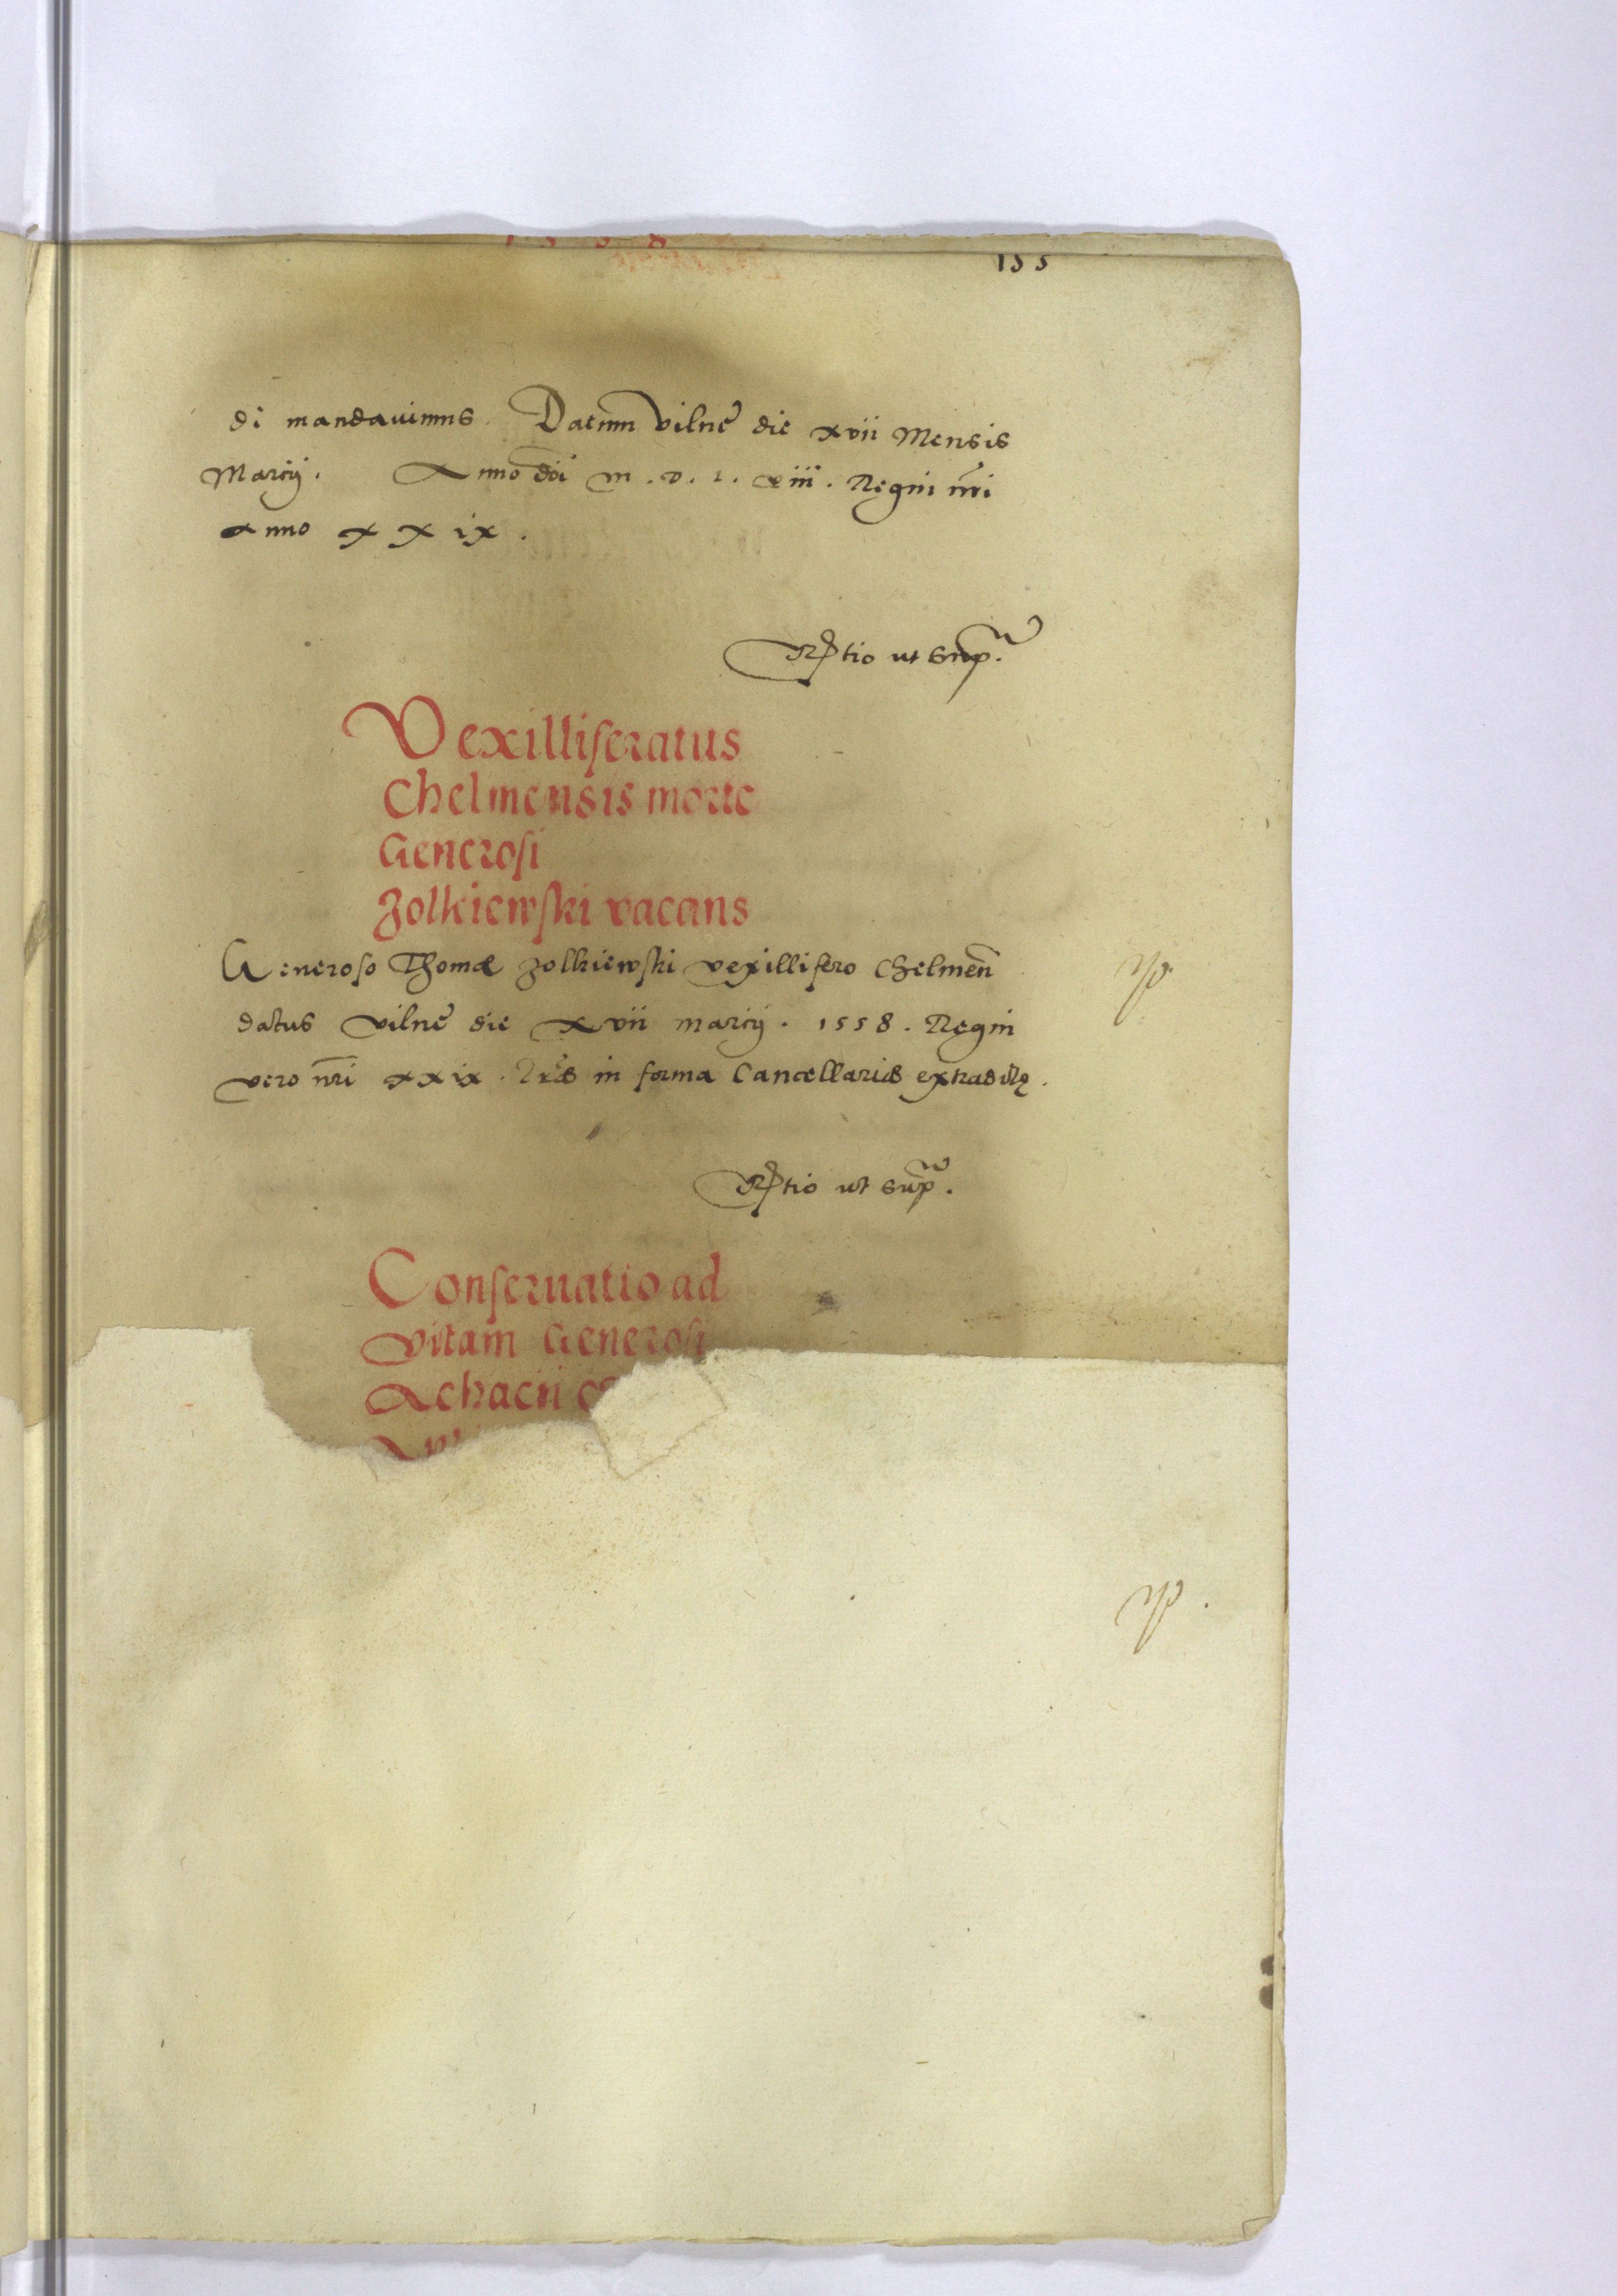 155
di mandauimus. Datum Vilnę die xvii Mensis
Marcij. Anno dni m. d. l. viii. Regni nri
Anno xxix.
Rtio ut supra.
Vexilliferatus
Chelmensis morte
Generosi
Zolkiewski vacans
Generoso Thomæ Zolkiewski vexillifero Chelmen
datus vilnę die xvii marcij. 1558. Regni
vero nri xxix. Lræ in forma Cancellariæ extraditę.
Rtio ut supra.
Conseruatio ad
vitam Generosi
Achacii